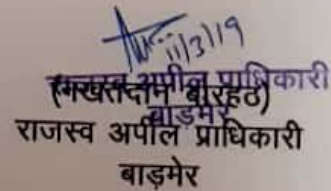 11/3/19
राजस्व अपील प्राधिकारी
बाड़मेर
(नखतदान बारहठ)
राजस्व अपील प्राधिकारी
बाड़मेर